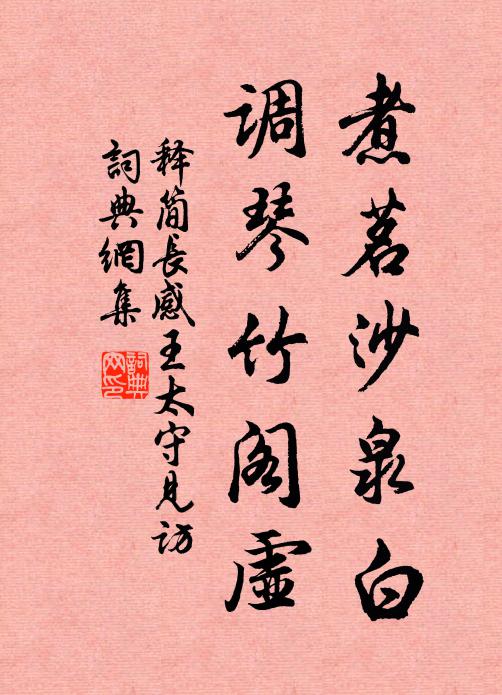 煮茗沙泉白
调琴竹阁虚
释简长感王太守见访
词典網集
詞典网印